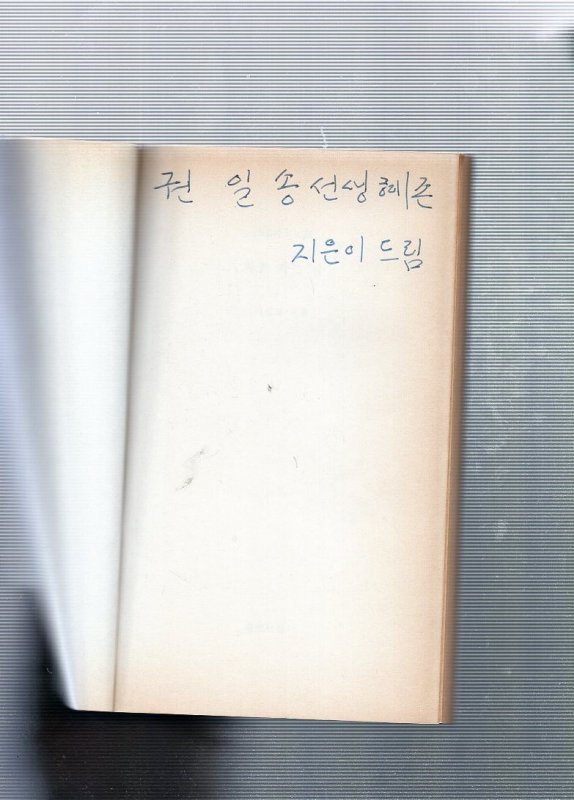 권 일 송 선생 혜존
지은이 드림